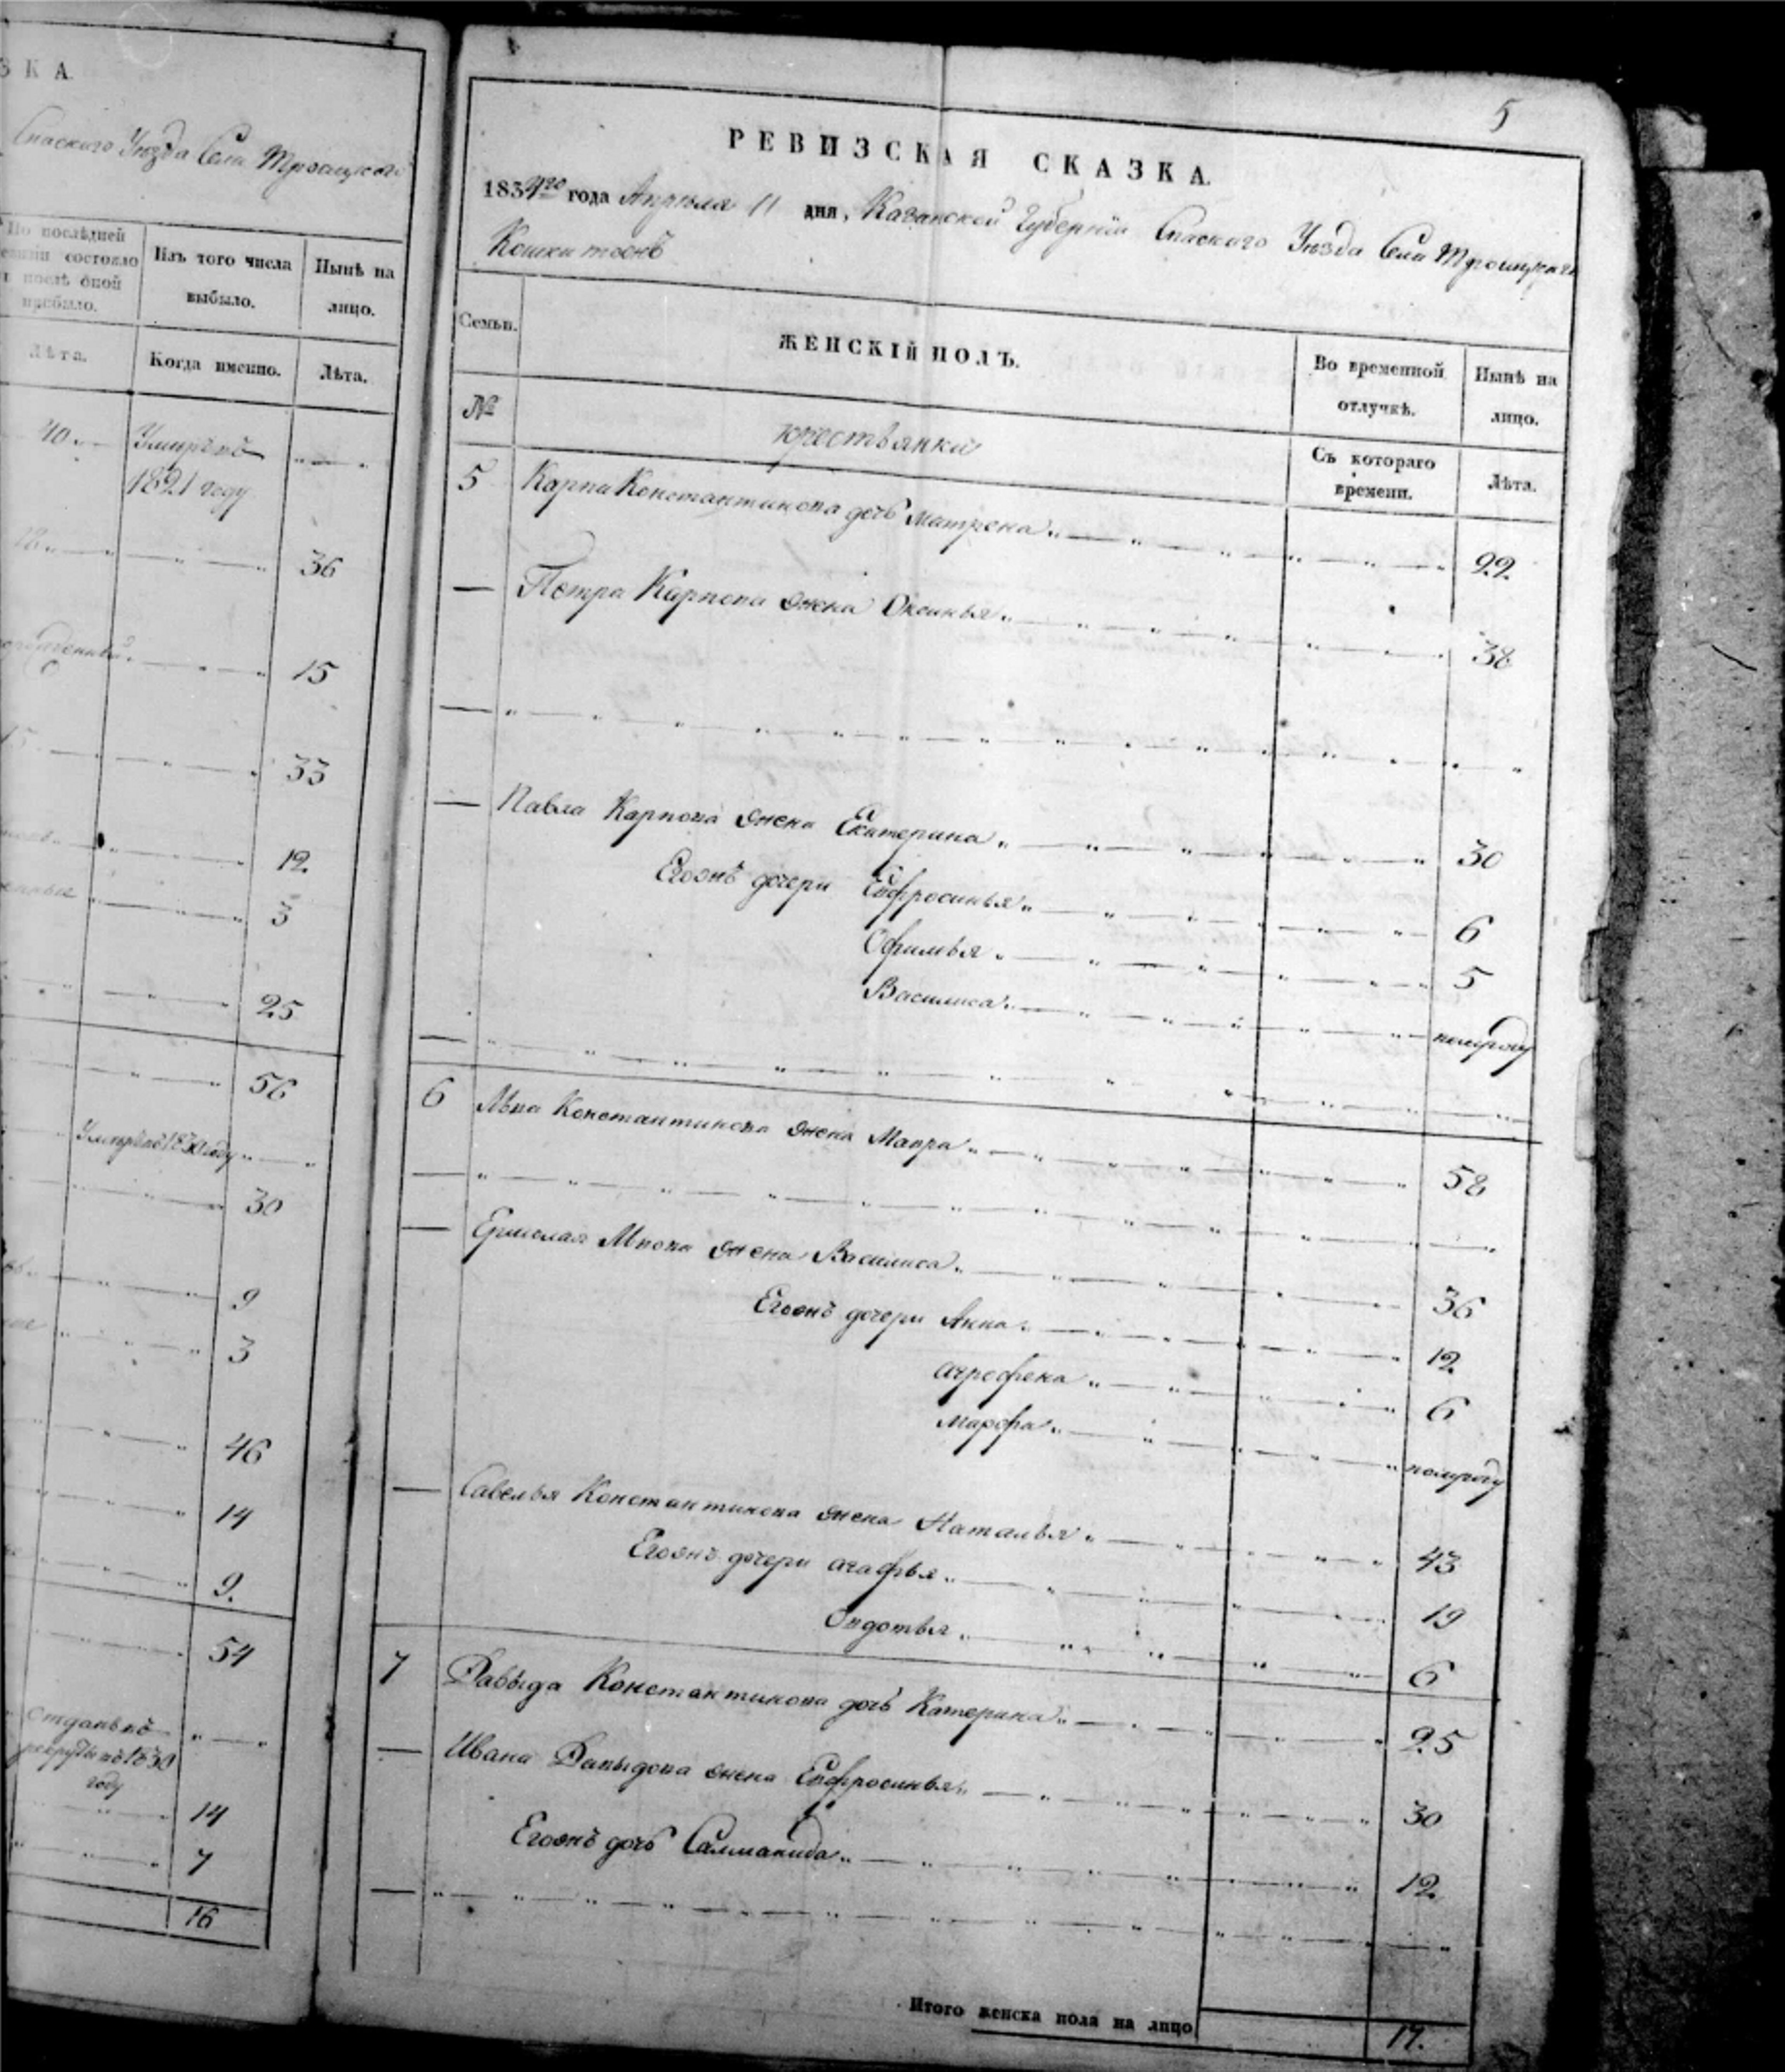 ЗКА
Спаского Уезда Села Троицкаго
По последней
состояло
и после оной
прибыло.
Изъ того числа
выбыло.
Нынѣ на
лицо.
Лѣта.
Когда именно.
Лѣта.
40
Умиръ въ
1821 году
36
15
33
12
3
25
56
Умиръ въ 1830 году
30
9
3
46
14
9.
54
Отданъ въ
рекруты въ 1830
году
14
7
16
5
РЕВИЗСКАЯ СКАЗКА.
1834го года Апреля 11 дня, Казанской Губернiи Спаского Уезда Села Троицкаго
Кошки тоонъ
Семьи.
ЖЕНСКIЙ ПОЛЪ.
Во временной
отлучкѣ.
Нынѣ на
лицо.
№
крестьянки
Съ котораго
времени.
Лѣта.
5 Карпа Константинова дочь матрена 22
— Петра Карпова жена Оксинья 38
— Павла Карпова жена Екатерина 30
Егоонъ дочери Ефросинья 6
Офимья 5
Василиса полугоду
6 Льва Константинова жена Мавра 58
— Ермолая Львова жена Василиса 36
Егоонъ дочери Анна 12
агрофена 6
марфа полугоду
— Савелья Константинова жена Наталья 43
Егоонъ дочери агафья 19
Овдотья 6
7 Давыда Константинова дочь Катерина 25
— Ивана Давыдова жена Ефросинья 30
Егоонъ дочь Саламанида 12
Итого женска пола на лицо 17.